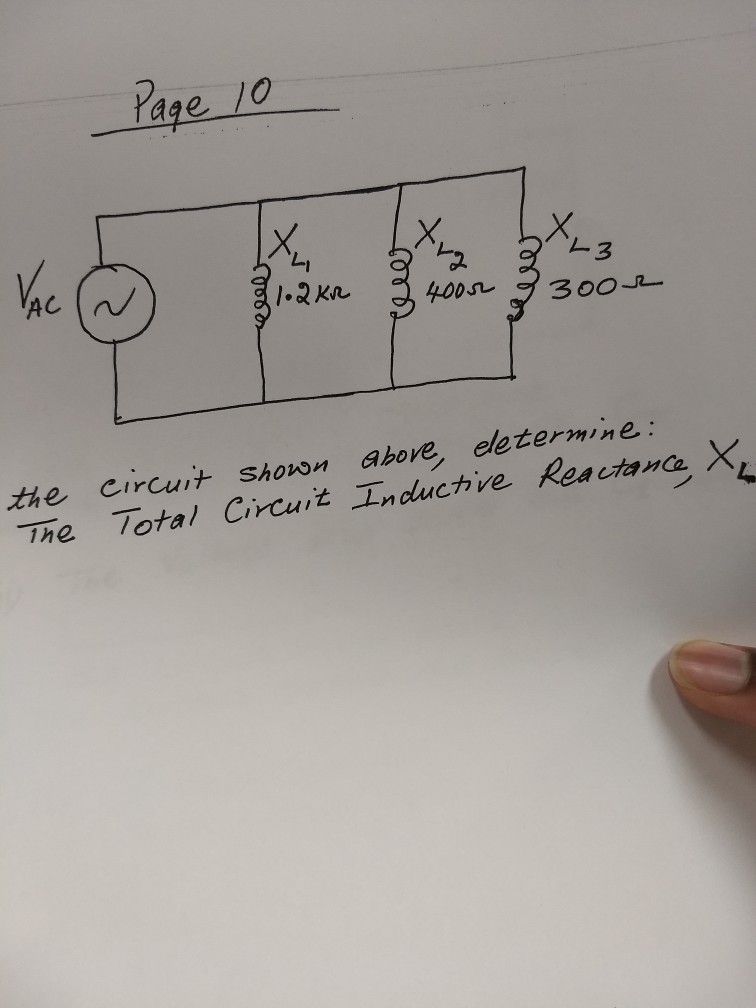 Page 10
VAC
XL1
1.2 KΩ
XL2
400Ω
XL3
300Ω
the circuit shown above, determine:
The Total Circuit Inductive Reactance, XL